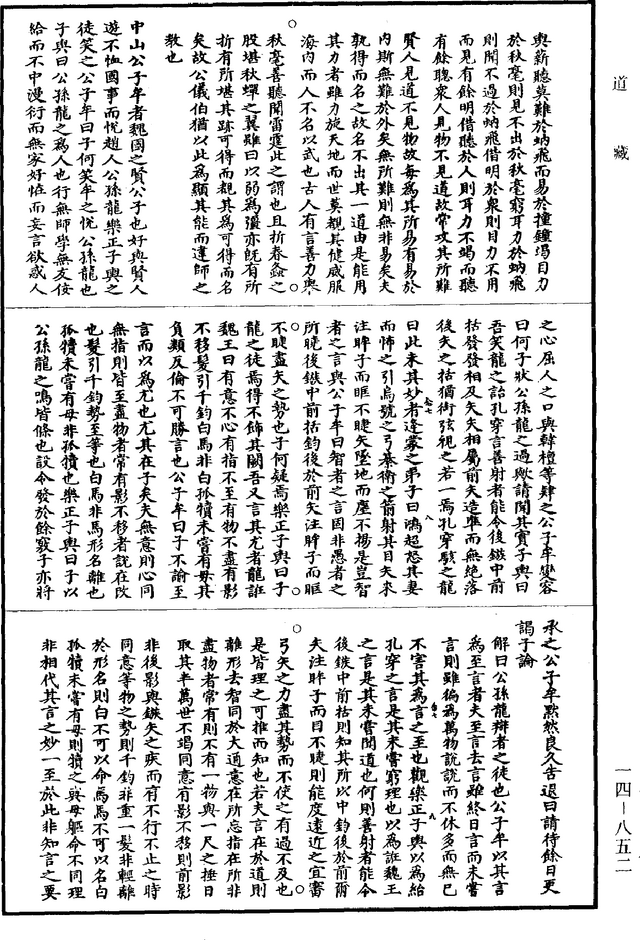 道藏
輿薪聽莫難於蚋飛而易於撞鐘竭目力
於秋毫則見不出於秋毫窮耳力於蚋飛
則聞不過於蚋飛借明於衆則目力不用
而見有餘明借聽於人則耳力不竭而聽
有餘聰衆人見物不見道故常攻其所難
賢人見道不見物故每爲其所易有易於
內斯無難於外矣無所難則無非易矣夫
孰得而名之故名不出其一道由是能用
其力者雖力旋天地而世莫覩其健威服
海內而人不名以武也古人有言善力舉
秋毫善聽聞雷霆此之謂也且折春螽之
股堪秋蟬之翼雖曰以弱爲彊亦旣有所
折有所堪其跡可得而覩其爲可得而名
矣故公儀伯猶以此爲顯其能而違師之
教也
中山公子牟者魏國之賢公子也好與賢人
遊不恤國事而悅趙人公孫龍樂正子輿之
徒笑之公子牟曰子何笑牟之悅公孫龍也
子輿曰公孫龍之爲人也行無師學無友佞
給而不中漫衍而無家好怪而妄言欲惑人
之心屈人之口與韓檀等肄之公子牟變容
曰何子狀公孫龍之過歟請聞其實子輿曰
吾笑龍之詒孔穿言善射者能令後鏃中前
括發發相及矢矢相屬前矢造準而無絕落
後矢之括猶銜弦視之若一焉孔穿駭之龍
曰此未其妙者逢蒙之弟子曰鴻超怒其妻
而怖之引烏號之弓綦衛之箭射其目矢來
注眸子而眶不睫矢墜地而塵不揚是豈智
者之言與公子牟曰智者之言固非愚者之
所曉後鏃中前括鈞後於前矢注眸子而眶
不睫盡矢之勢也子何疑焉樂正子輿曰子
龍之徒焉得不飾其闕吾又言其尤者龍誑
魏王曰有意不心有指不至有物不盡有影
不移髮引千鈞白馬非白孤犢未嘗有母其
負類反倫不可勝言也公子牟曰子不諭至
言而以爲尤也尤其在子矣夫無意則心同
無指則皆至盡物者常有影不移者說在改
也髮引千鈞勢至等也白馬非馬形名離也
孤犢未嘗有母非孤犢也樂正子輿曰子以
公孫龍之鳴皆條也設令發於餘竅子亦將
承之公子牟默然良久告退曰請待餘日更
謁子論
解曰公孫龍辯者之徒也公子牟以其言
爲至言者夫至言去言雖終日言而未嘗
言則雖徧爲萬物說說而不休多而無已
不害其爲言之至也觀樂正子輿以爲給
孔穿之言是其未嘗窮理也以爲誑魏王
之言是其未嘗聞道也何則善射者能令
後鏃中前括則知其所以中鈞後於前爾
矢注眸子而目不睫則能度遠近之宜審
弓矢之力盡其勢而不使之有過不及也
是皆理之可推而知也若夫言在於道則
離形去智同於大通意在所忘指在所非
盡物者常有則不有一物與一尺之捶日
取其半萬世不竭同意有影不移則前影
非後影與鏃矢之疾而有不行不止之時
同意等物之勢則千鈞非重一髮非輕離
於形名則白不可以命馬馬不可以名白
孤犢未嘗有母則犢之與母軀命不同理
非相代其言之妙一至於此非知言之要
一四—八五二